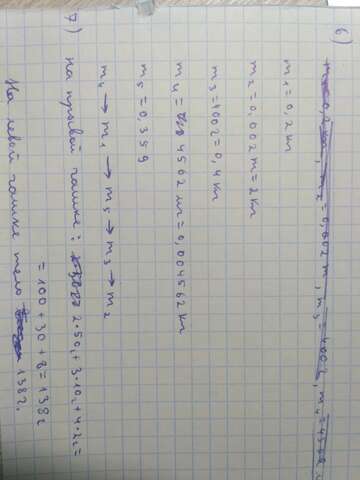 6)
m₁ = 0,2 кг
m₂ = 0,002 т = 2 кг
m₃ = 400г = 0,4 кг
m₄ = 4562 мг = 0,00 4562 кг
m₅ = 0,35
m₄ → m₁ → m₅ → m₃ → m₂
7) На правой чашке: 2·50г + 3·10г + 4·2г =
= 100 + 30 + 8 = 138г
На левой чашке тело 138г.